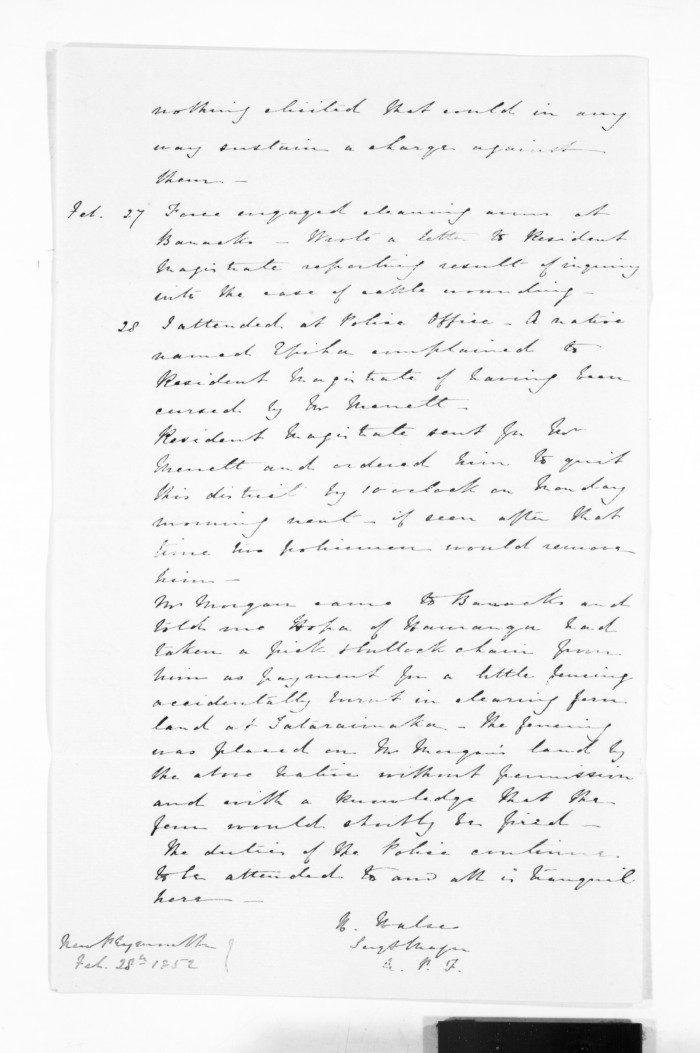 nothing elicited that could in any
way sustain a charge against
them —
Feb. 27 Force engaged cleaning arms at
Barracks — Wrote a letter to Resident
Magistrate reporting result of inquiry
into the case of cattle wounding —
28 I attended at Police Office — A native
named Epiha complained to
Resident Magistrate of having been
cursed by Mr
Resident Magistrate sent for Mr
and ordered him to quit
this district by 10 o'clock on Monday
morning next — if seen after that
time two policemen would remove
him —
Mr Morgan came to Barracks and
told me Hopa of Hauranga had
taken a pick & bullock chain from
him as payment for a little fencing
accidentally burnt in clearing fern
land at Tataraimaka — The fencing
was placed on Mr Morgan's land by
the above native without permission
and with a knowledge that the
fern would shortly be fired —
The duties of the Police continue
to be attended to and all is tranquil
here —
H. Halse
Sergt Major
A. P. F.
New Plymouth
Feb. 28th 1852